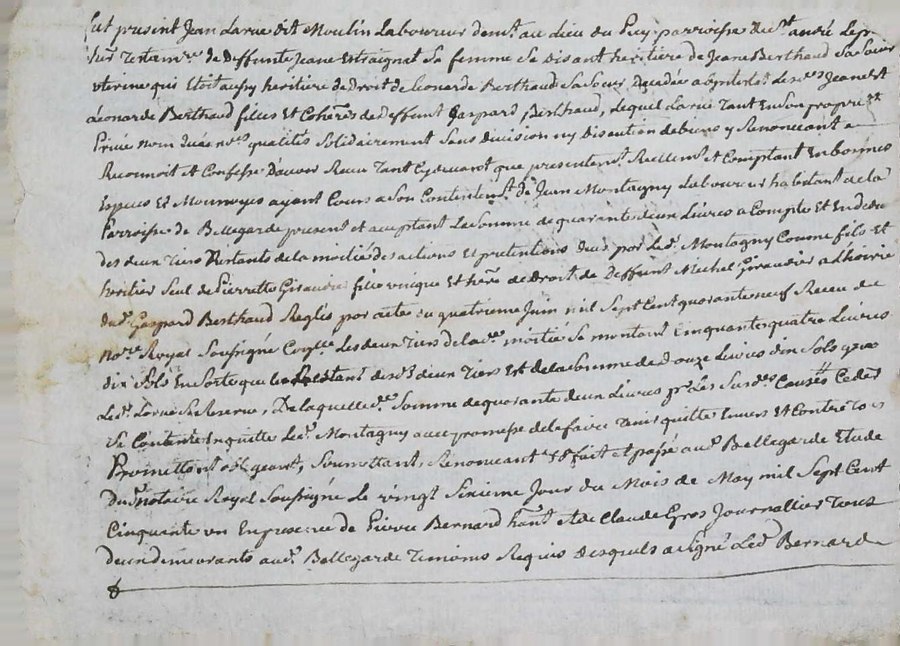 fut présent Jean Larue dit Moulin Laboureur dem.t au lieu du Puy parroisse de S.t andré Le
de deffunte Jeane Estraignat Sa femme Se disant heritiere de Jeane Berthaud Sa Soeur
uterine qui Etoit aussy heritiere de Droit de Leonarde Berthaud Sa Soeur Decedée abyntestat Lesd.es Jeane Et
Leonarde Berthaud filles Et Cohéres de deffunt Gaspard Berthaud, Lequel Larue Tant En Son propre Et
Privé nom qualités Solidairement Sans division ny discution de biens y Renoncant a
Reconnoit Et Confesse D'avoir Receu Tant Cydevant que presentem.t Reellem.t Et Comptant En bonnes
Especes Et Monnoyes ayant Cours a Son Contentem.t de Jean Montagny Laboureur habitant de la
Parroisse de Bellegarde present et acceptant La Somme de quarante deux Livres a Compte Et En
des deux Tiers Restants de la moitié des actions Et pretentions par Led. Montagny Comme fils Et
heritier Seul de Pierrette Giraudier fille unique Et hére de Droit de deffunt Michel Giraudier a L'hoirie
dud. Gaspard Berthaud Reglés par acte du quatrieme Juin mil Sept Cent quarante neuf Receu du
no.re Royal Soussigné Les deux Tiers de lad. moitié Se montant Cinquante quatre Livres
dix Sols En Sorte que le Restant desd. deux Tiers Est de la Somme de Douze Livres dix Sols que
Led. Larue Se Reserve, De laquelle d.e Somme de quarante deux Livres p.r Les Susd.es Causes Ced.
Se Contente En quitte Led. Montagny avec promesse de le faire Tenir quitte Envers Et Contre Tous
Promettant obligeant, Soumettant, Renoncant &c fait et passé aud. Bellegarde Etude
dud. notaire Royal Soussigné Le vingt Sixieme Jour du Mois de May mil Sept Cent
Cinquante un En presence de Pierre Bernard hant et de Claude Gros Journallier Tous
deux demeurants aud. Bellegarde Temoins Requis Desquels a Signé Led. Bernard